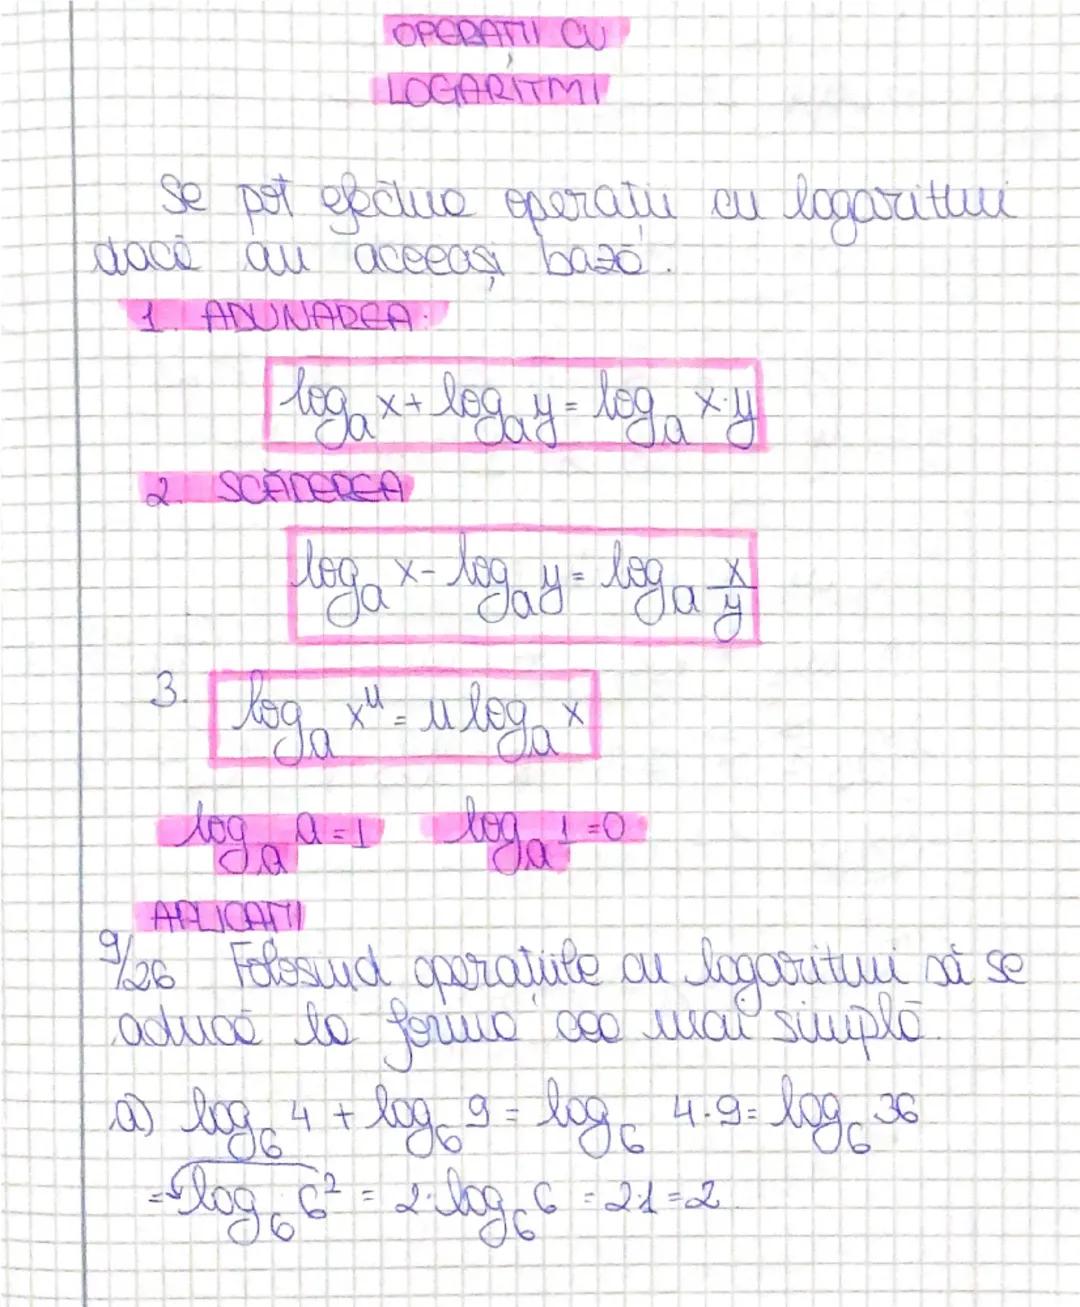 OPERAȚII CU
LOGARITMI
Se pot efectua operații cu logaritmi
dacă au aceeași bază.
1. ADUNAREA.
logₐ x + logₐ y = logₐ x·y
2. SCĂDEREA
logₐ x - logₐ y = logₐ x/y
3. logₐ xⁿ = n logₐ x
logₐ a = 1 logₐ 1 = 0
APLICAȚII
9/26 Folosind operațiile cu logaritmi să se
aducă la forma cea mai simplă.
a) log₆ 4 + log₆ 9 = log₆ 4·9 = log₆ 36
= log₆ 6² = 2·log₆ 6 = 2·1 = 2